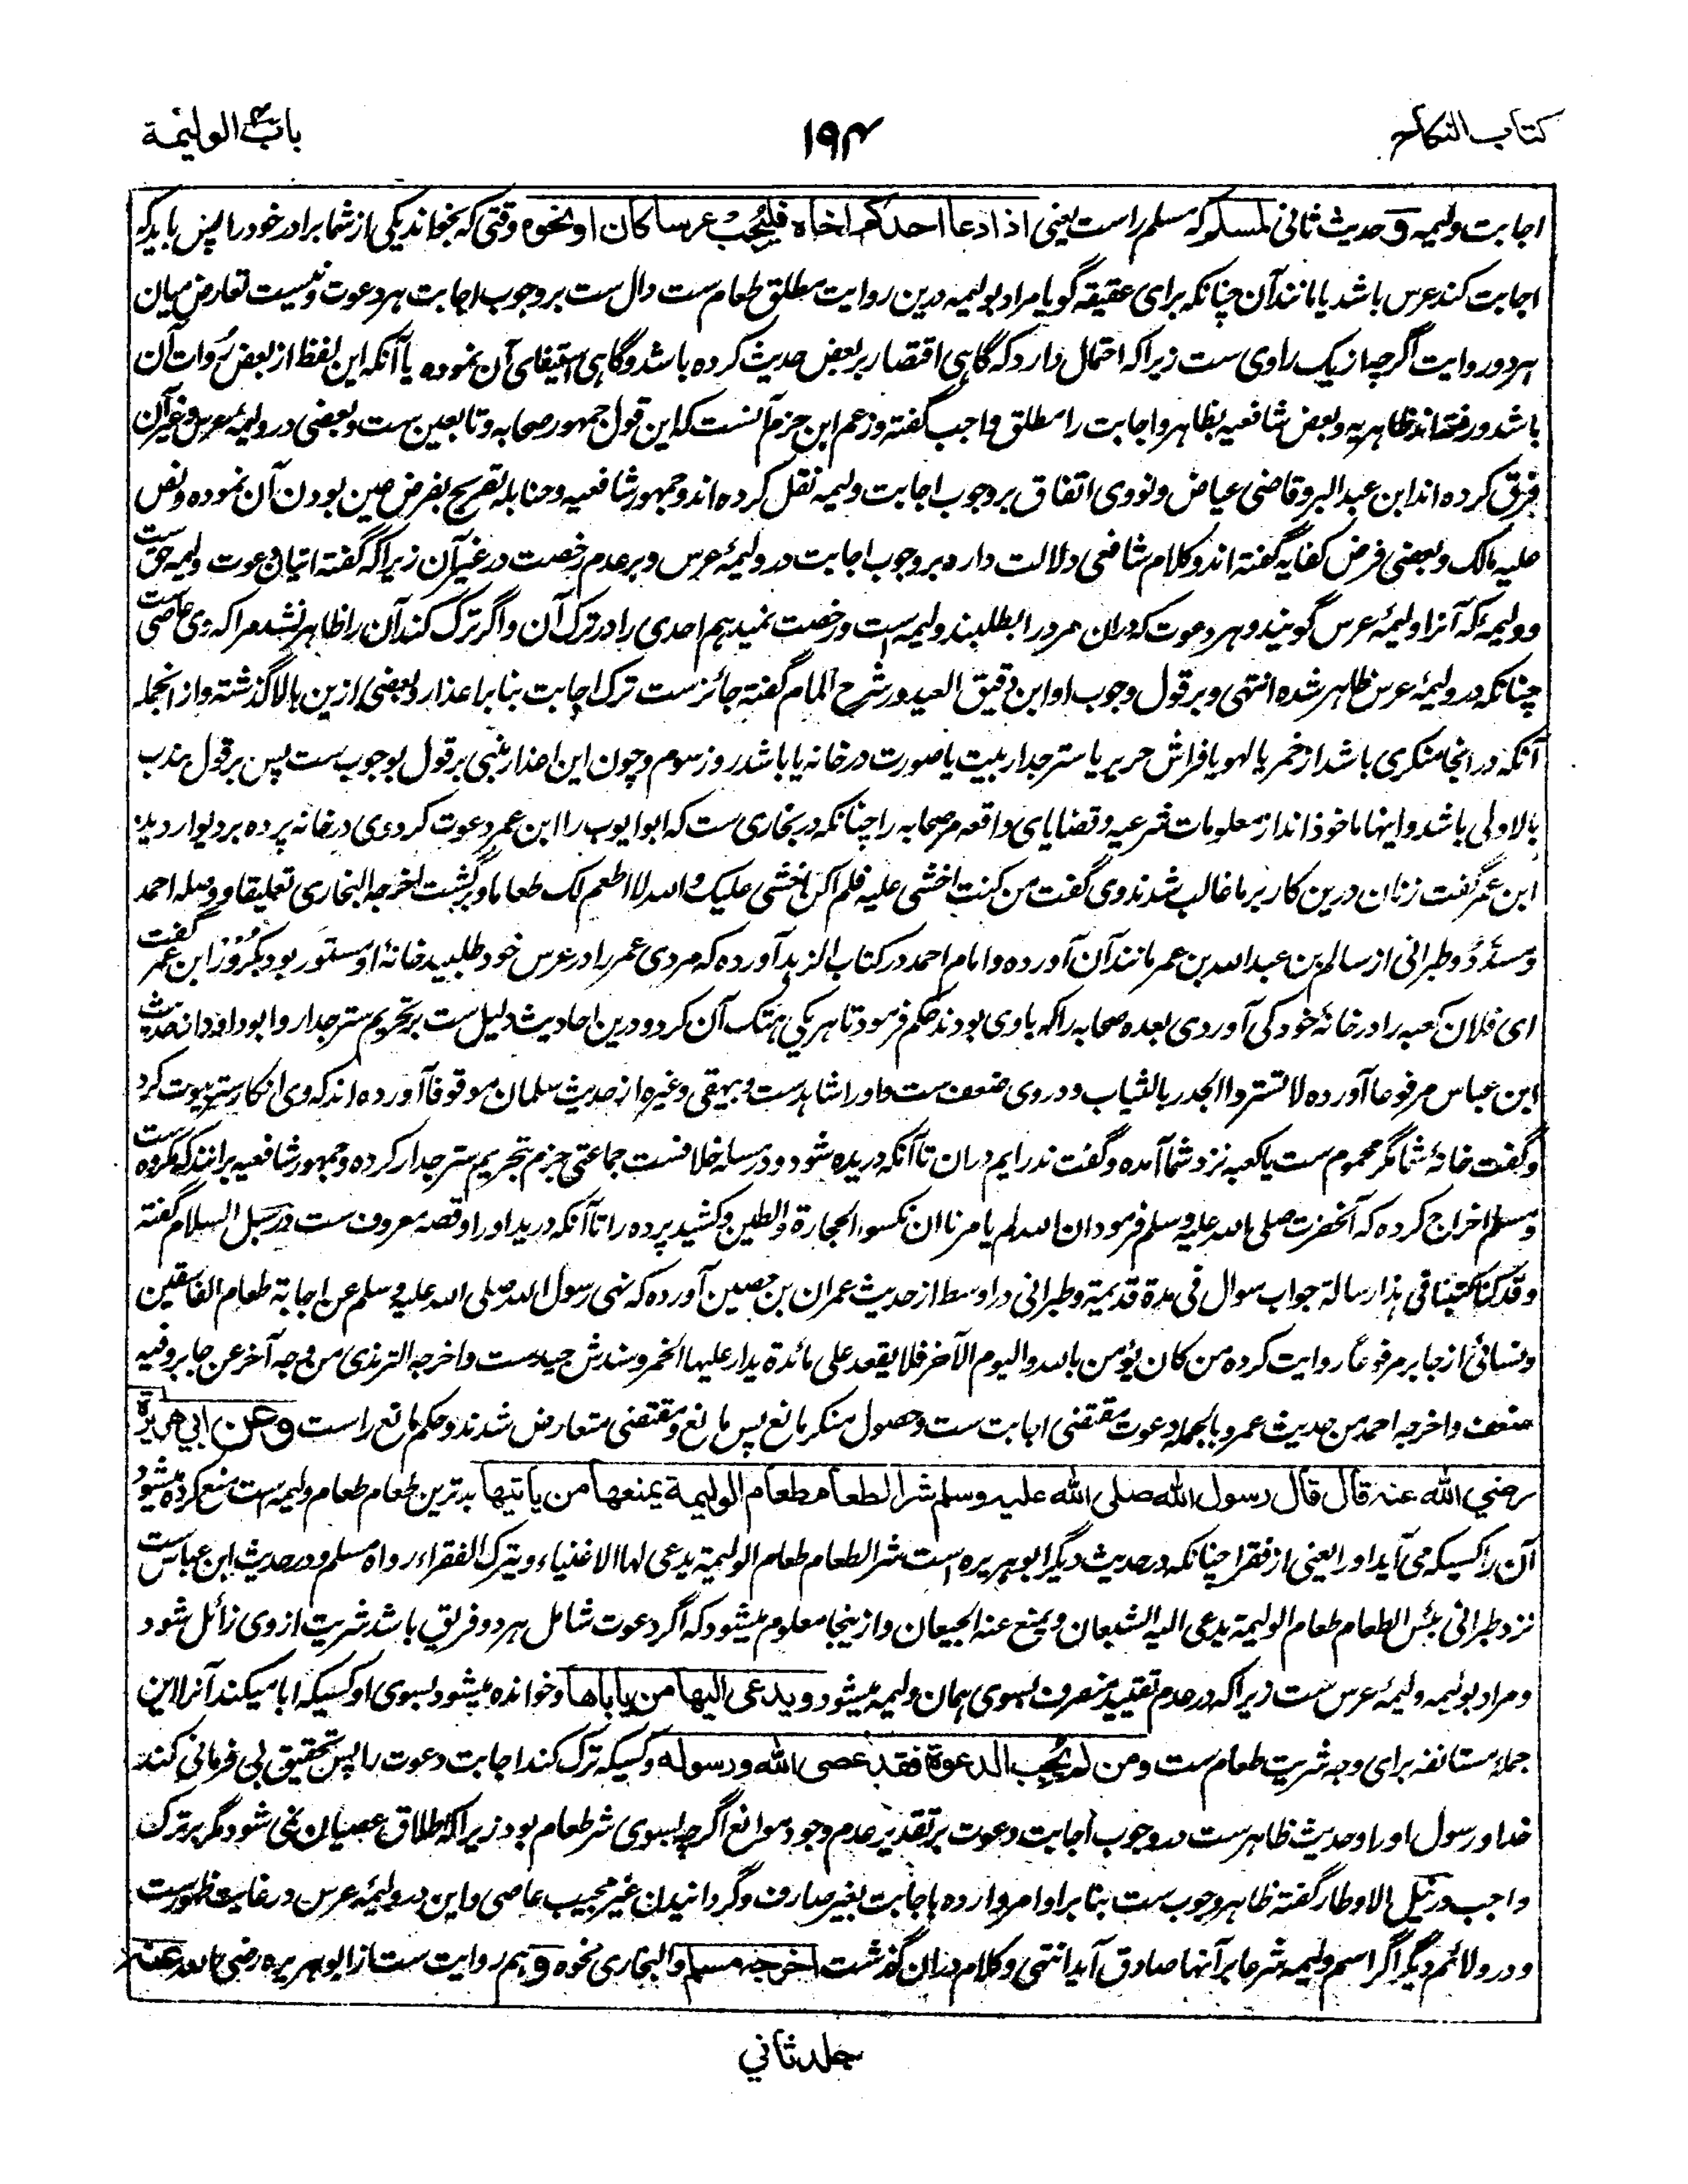 کتاب النکاح
۱۹۴
باب الولیمة
اجابت ولیمه و حدیث ثانی لمسلم که مسلم راست یعنی اذا دعا احدکم اخاه فلیجب عرسا کان او نحوه وقتی که بخواند یکی از شما برادر خود را پس باید که
اجابت کند عرس باشد یا مانند آن چنانکه برای عقیقه گویا مراد بولیمه درین روایت مطلق طعام ست دال ست بر وجوب اجابت هر دعوت و نیست تعارض میان
هر دو روایت اگرچه از یک راوی ست زیراکه احتمال دارد که گاهی اقتصار بر بعض حدیث کرده باشد و گاهی استیفای آن نموده یا آنکه این لفظ از بعض روات آن
باشد و رفته اند ظاهریه و بعض شافعیه بظاهر و اجابت را مطلق واجب گفته و زعم ابن حزم آنست که این قول جمهور صحابه و تابعین ست و بعضی در ولیمه عرس و غیر آن
فرق کرده اند ابن عبدالبر و قاضی عیاض و نووی اتفاق بر وجوب اجابت ولیمه نقل کرده اند و جمهور شافعیه و حنابله تصریح بفرض عین بودن آن نموده و نص
علیه مالک و بعضی فرض کفایه گفته اند و کلام شافعی دلالت دارد بر وجوب اجابت در ولیمهٔ عرس و بر عدم رخصت در غیر آن زیراکه گفته اتیان دعوت ولیمه حق ست
و ولیمهٔ که آنرا ولیمهٔ عرس گویند و هر دعوت که دران مرد را بطلبند ولیمه است و رخصت نمیدهم احدی را در ترک آن و اگر ترک کند آن را ظاهر نشد مرا که وی عاصی ست
چنانکه در ولیمهٔ عرس ظاهر شده انتهی و بر قول وجوب او ابن دقیق العید در شرح المام گفته جائزست ترک اجابت بنا بر اعذار و بعضی ازین بالا گذشته و از انجمله
آنکه در انجا منکری باشد از خمر یا لهو یا فراش حریر یا ستر جدار بیت یا صورت در خانه یا باشد روز سوم و چون این اعذار مبنی بر قول بوجوب ست پس بر قول ندب
بالاولی باشد و اینها ماخوذ اند از معلومات شرعیه و قضایای واقعه مر صحابه را چنانکه در بخاری ست که ابو ایوب را ابن عمر دعوت کرد وی در خانه پرده بر دیوار دید
ابن عمر گفت زنان درین کار بر ما غالب شدند وی گفت من کنت اخشی علیه فلم اکن اخشی علیک والله لا اطعم لک طعاما و برگشت اخرجه البخاری تعلیقا و وصله احمد
و مسدد و طبرانی از سالم بن عبدالله بن عمر مانند آن آورده و امام احمد در کتاب الزهد آورده که مردی عمر را در عرس خود طلبید خانهٔ او مستور بود دیگر روز ابن عمر گفت
ای فلان کعبه را در خانهٔ خود کی آوردی بعده صحابه را که با وی بودند حکم فرمود تا هر یکی هتک آن کرد و درین احادیث دلیل ست بر تحریم ستر جدار و ابوداود از حدیث
ابن عباس مرفوعا آورده لا تستروا الجدر بالثیاب و در وی ضعف ست و او را شاهدست و بیهقی و غیره از حدیث سلمان موقوفا آورده اند که وی انکار ستر بیوت کرد
و گفت خانهٔ شما مگر محموم ست یا کعبه نزد شما آمده و گفت ندرایم دران تا آنکه دریده شود و در مساله خلاف ست جماعتی جزم بتحریم ستر جدار کرده و جمهور شافعیه برانند که مکروه ست
و مسلم اخراج کرده که آنحضرت صلی الله علیه وسلم فرمود ان الله لم یامرنا ان نکسو الحجارة والطین و کشید پرده را تا آنکه درید او را و قصه معروف ست در سبل السلام گفته
و قد کنا کتبنا فی هذا رسالة جواب سوال فی مدة قدیمة و طبرانی در اوسط از حدیث عمران بن حصین آورده که نهی رسول الله صلی الله علیه وسلم عن اجابة طعام الفاسقین
و نسائی از جابر مرفوعاً روایت کرده من کان یؤمن بالله والیوم الآخر فلا یقعد علی مائدة یدار علیها الخمر و سندش جیدست و اخرجه الترمذی من وجه آخر عن جابر و فیه
ضعف و اخرجه احمد من حدیث عمر و بالجمله دعوت مقتضی اجابت ست و حصول منکر مانع پس مانع و مقتضی متعارض شدند و حکم مانع راست وعن ابی هریرة
رضی الله عنه قال قال رسول الله صلی الله علیه وسلم شر الطعام طعام الولیمة یمنعها من یاتیها بدترین طعام طعام ولیمه است منع کرده میشود
آن را کسیکه می آید او را یعنی از فقرا چنانکه در حدیث دیگر ابوهریره است شر الطعام طعام الولیمة یدعی لها الاغنیاء و یترک الفقراء رواه مسلم و در حدیث ابن عباس ست
نزد طبرانی بئس الطعام طعام الولیمة یدعی الیه الشبعان و یمنع عنه الجیعان و از ینجا معلوم میشود که اگر دعوت شامل هر دو فریق باشد شریت از وی زائل شود
و مراد بولیمه ولیمهٔ عرس ست زیراکه در عدم تقیید منصرف بسوی همان ولیمه میشود ویدعی الیها من یاباها و خوانده میشود بسوی او کسیکه ابا میکند آنرا این
جمله مستانفه برای وجه شریت طعام ست ومن لم یجب الدعوة فقد عصی الله ورسوله و کسیکه ترک کند اجابت دعوت را پس تحقیق بی فرمانی کند
خدا و رسول او را و حدیث ظاهرست در وجوب اجابت دعوت بر تقدیر عدم وجود موانع اگرچه بسوی شر طعام بود زیراکه اطلاق عصیان نمی شود مگر بر ترک
واجب در نیل الاوطار گفته ظاهر وجوب ست بنا بر اوامر وارده باجابت بغیر صارف و گردانیدن غیر مجیب عاصی و این در ولیمهٔ عرس در غایت ظهورست
و در ولائم دیگر اگر اسم ولیمه شرعا بر آنها صادق آید انتهی و کلام دران گذشت اخرجه مسلم والبخاری نحوه و هم روایت ست از ابوهریره رضی الله عنه
جلد ثانی